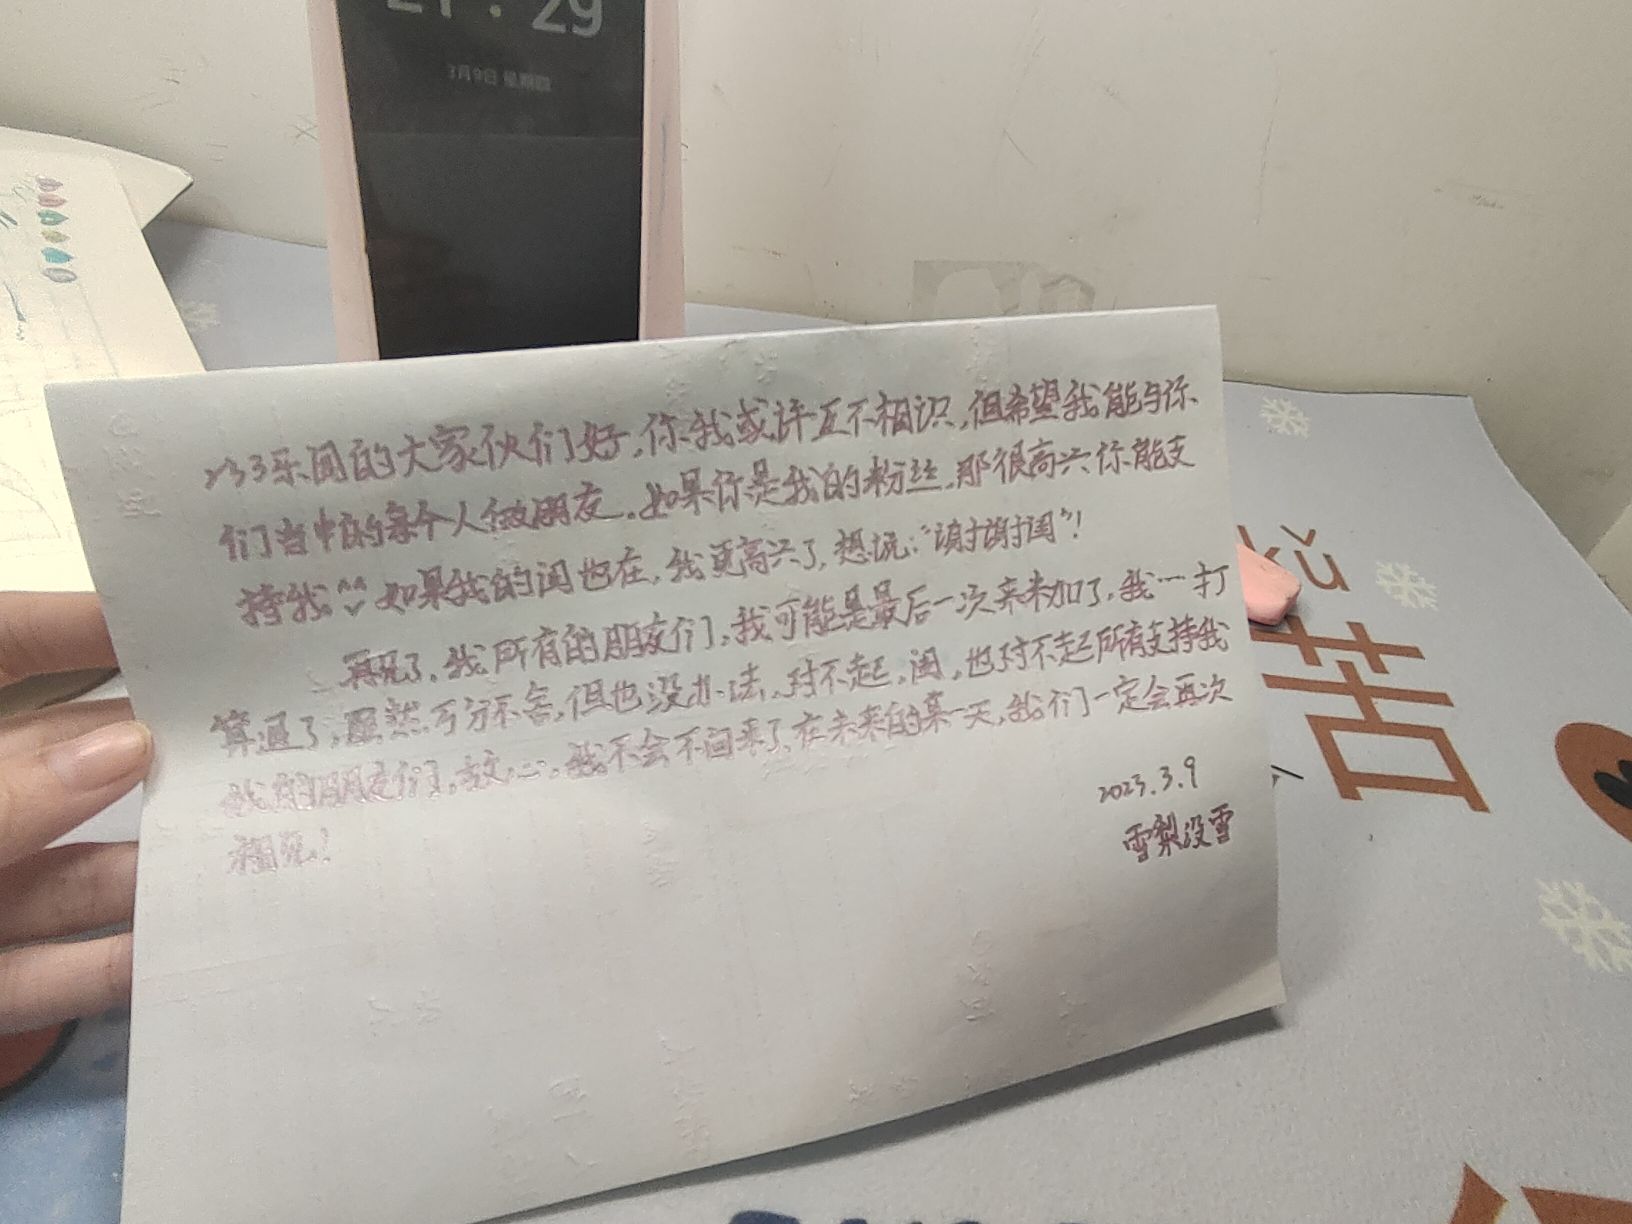 21:29
3月9日 星期四
233乐园的大家伙们好，你我或许互不相识，但希望我能与你
们当中的每个人做朋友。如果你是我的粉丝，那很高兴你能支
持我^^如果我的闺也在，我更高兴了，想说：“谢谢闺”！
再见了，我所有的朋友们，我可能是最后一次来加了，我…打
算退了，虽然万分不舍，但也没办法，对不起，闺，也对不起所有支持我
我的朋友们，放心，我不会不回来了，在未来的某一天，我们一定会再次
相见！
2023.3.9
雪梨没雪